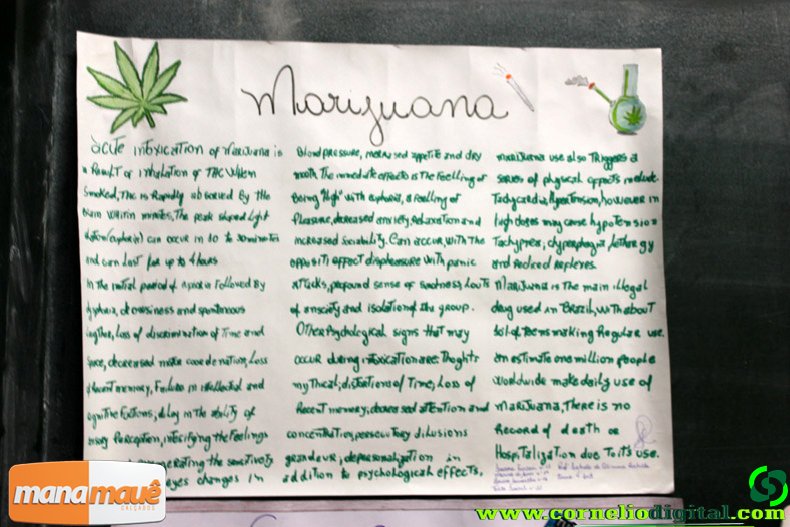 Marijuana
acute intoxication of Marijuana is
a Result of inhalation of THC. When
Smoked, THC is Rapidly absorbed by the
brain within minutes, The peak
(euphoria) can occur in 10 to 30 minutes
and can last for up to 4 hours
In the initial period of followed by
dysphoria, drowsiness and spontaneous
laughter, Loss of discrimination of Time and
space, decreased motor coordenation, Loss
of Recent memory, Failure in intellectual and
cognitive; delay in the ability of
sensory Perception, intesifying the Feelings
the sensitivity
changes in
Blood pressure, increased appetite and dry
mooth. The immediate effects is The Feelling of
Being "High" with euphoria, a Feelling of
Pleasure, decreased anxiety, Relaxation and
increased sociability. Can occur, with the
opposit; effect displeasure with panic
attacks, profound sense of sadness,
of anxiety and isolation of the group.
Other Psychological signs that may
occur during intoxication are: Thoghts
mythical; distortions of Time; Loss of
Recent memory; decreased attention and
concentration, persecutory dilusions
grandeur; depersonalization in
addition to psychological effects,
marijuana use also TRiggers a
series of physical effects include
Tachycardia, Hypertension, however in
high doses may cause hypotension
Tachypnea; hyperphagia; lethargy
and Reduced Reflexes.
Marijuana is the main illegal
drug used in Brazil, with about
of Teens making Regular use.
an estimate one million people
worldwide make daily use of
Marijuana, There is no
Record of death or
Hospitalization due To its use.
manamauê
CALÇADOS
www.corneliodigital.com